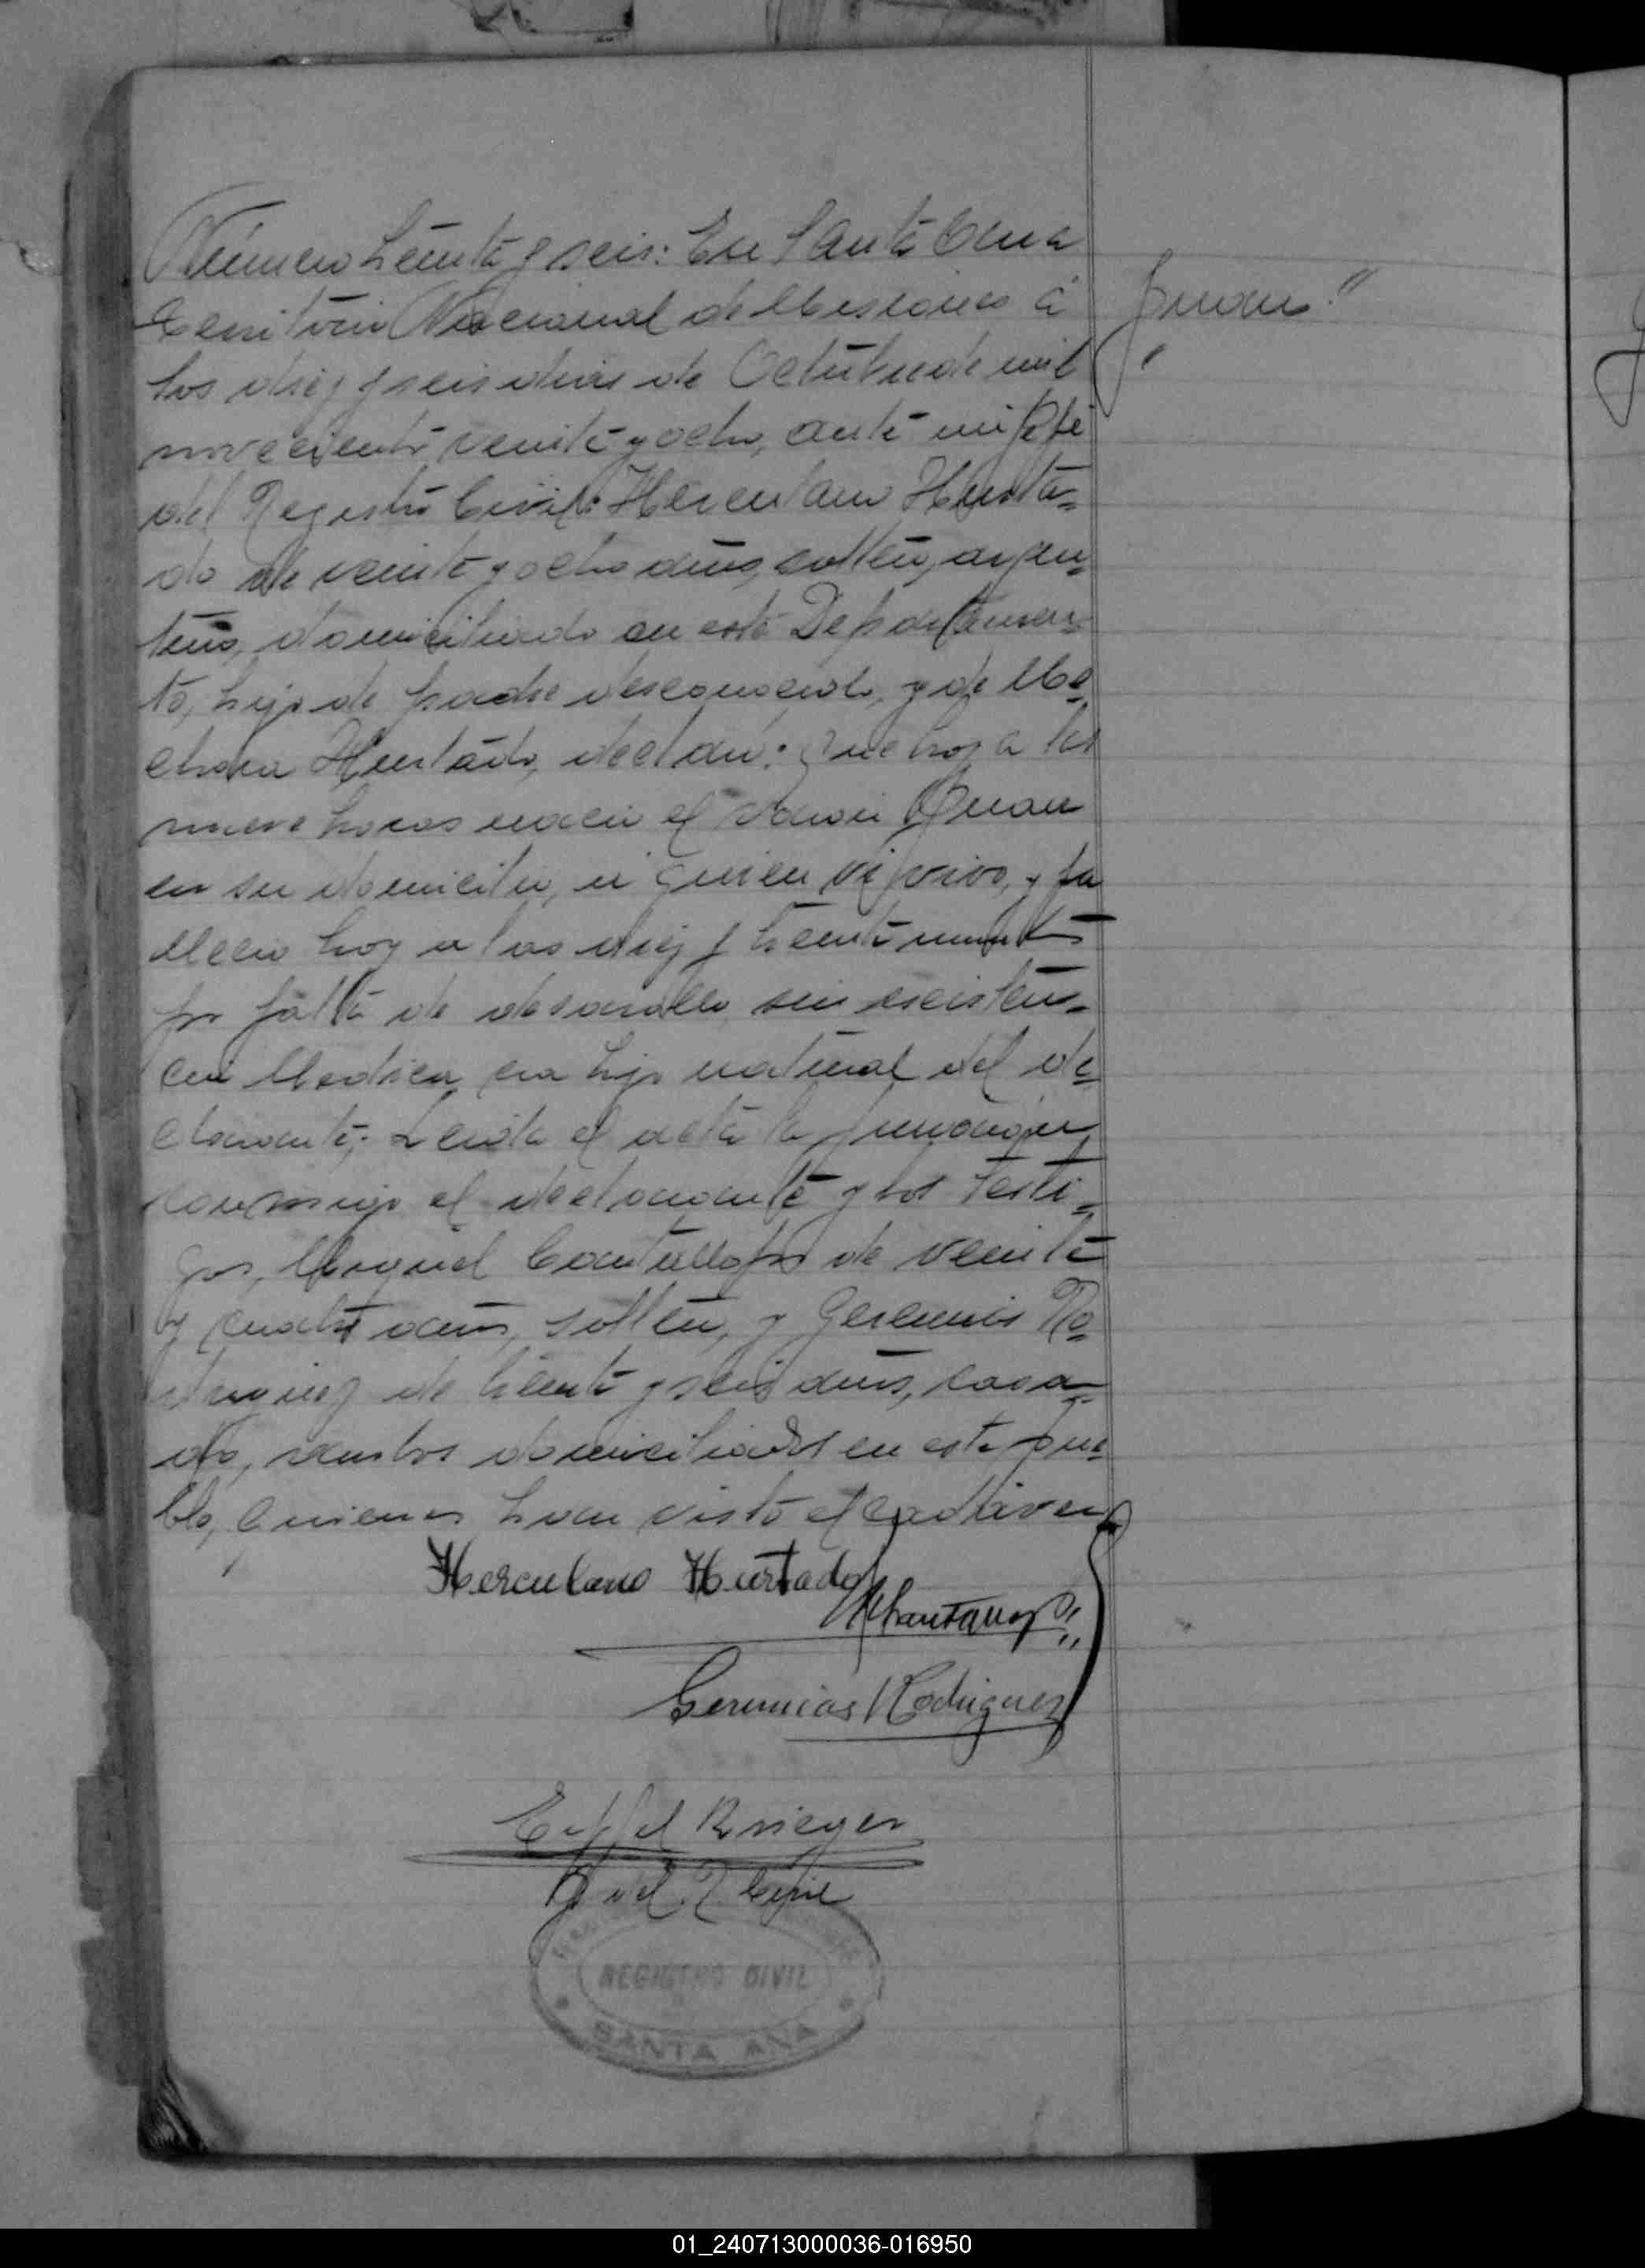 Número treinta y seis: En Santa Ana
Territorio Nacional de Misiones á
los diez y seis dias de Octubre de mil
novecientos veinte y ocho, ante mi Jefe
del Registro Civil: Herculano Hurta=
do de veinte y ocho años, soltero, argen=
tino, domiciliado en este Departamen=
to, hijo de padre desconocido, y de
Hurtado, declaró: Que hoy a las
nueve horas nació el varon Juan
en su domicilio, a quien vi vivo, y fa
llecio hoy a las diez y treinta minutos
por falta de desarollo sin asisten=
cia Medica, era hijo natural del de=
clarante; Leida el acta la firmaron
conmigo el declarante y los testi=
gos, Miguel de veinte
y cuatro años, soltero, y Geremias Ro=
driguez de treinta y seis años, casa=
do, ambos domiciliados en este pue=
blo, quienes han visto el cadáver
Juan"
Herculano Hurtado
Geremias Rodriguez
Krieger
J. del R. Civil
REGISTRO CIVIL
SANTA ANA
01_240713000036-016950